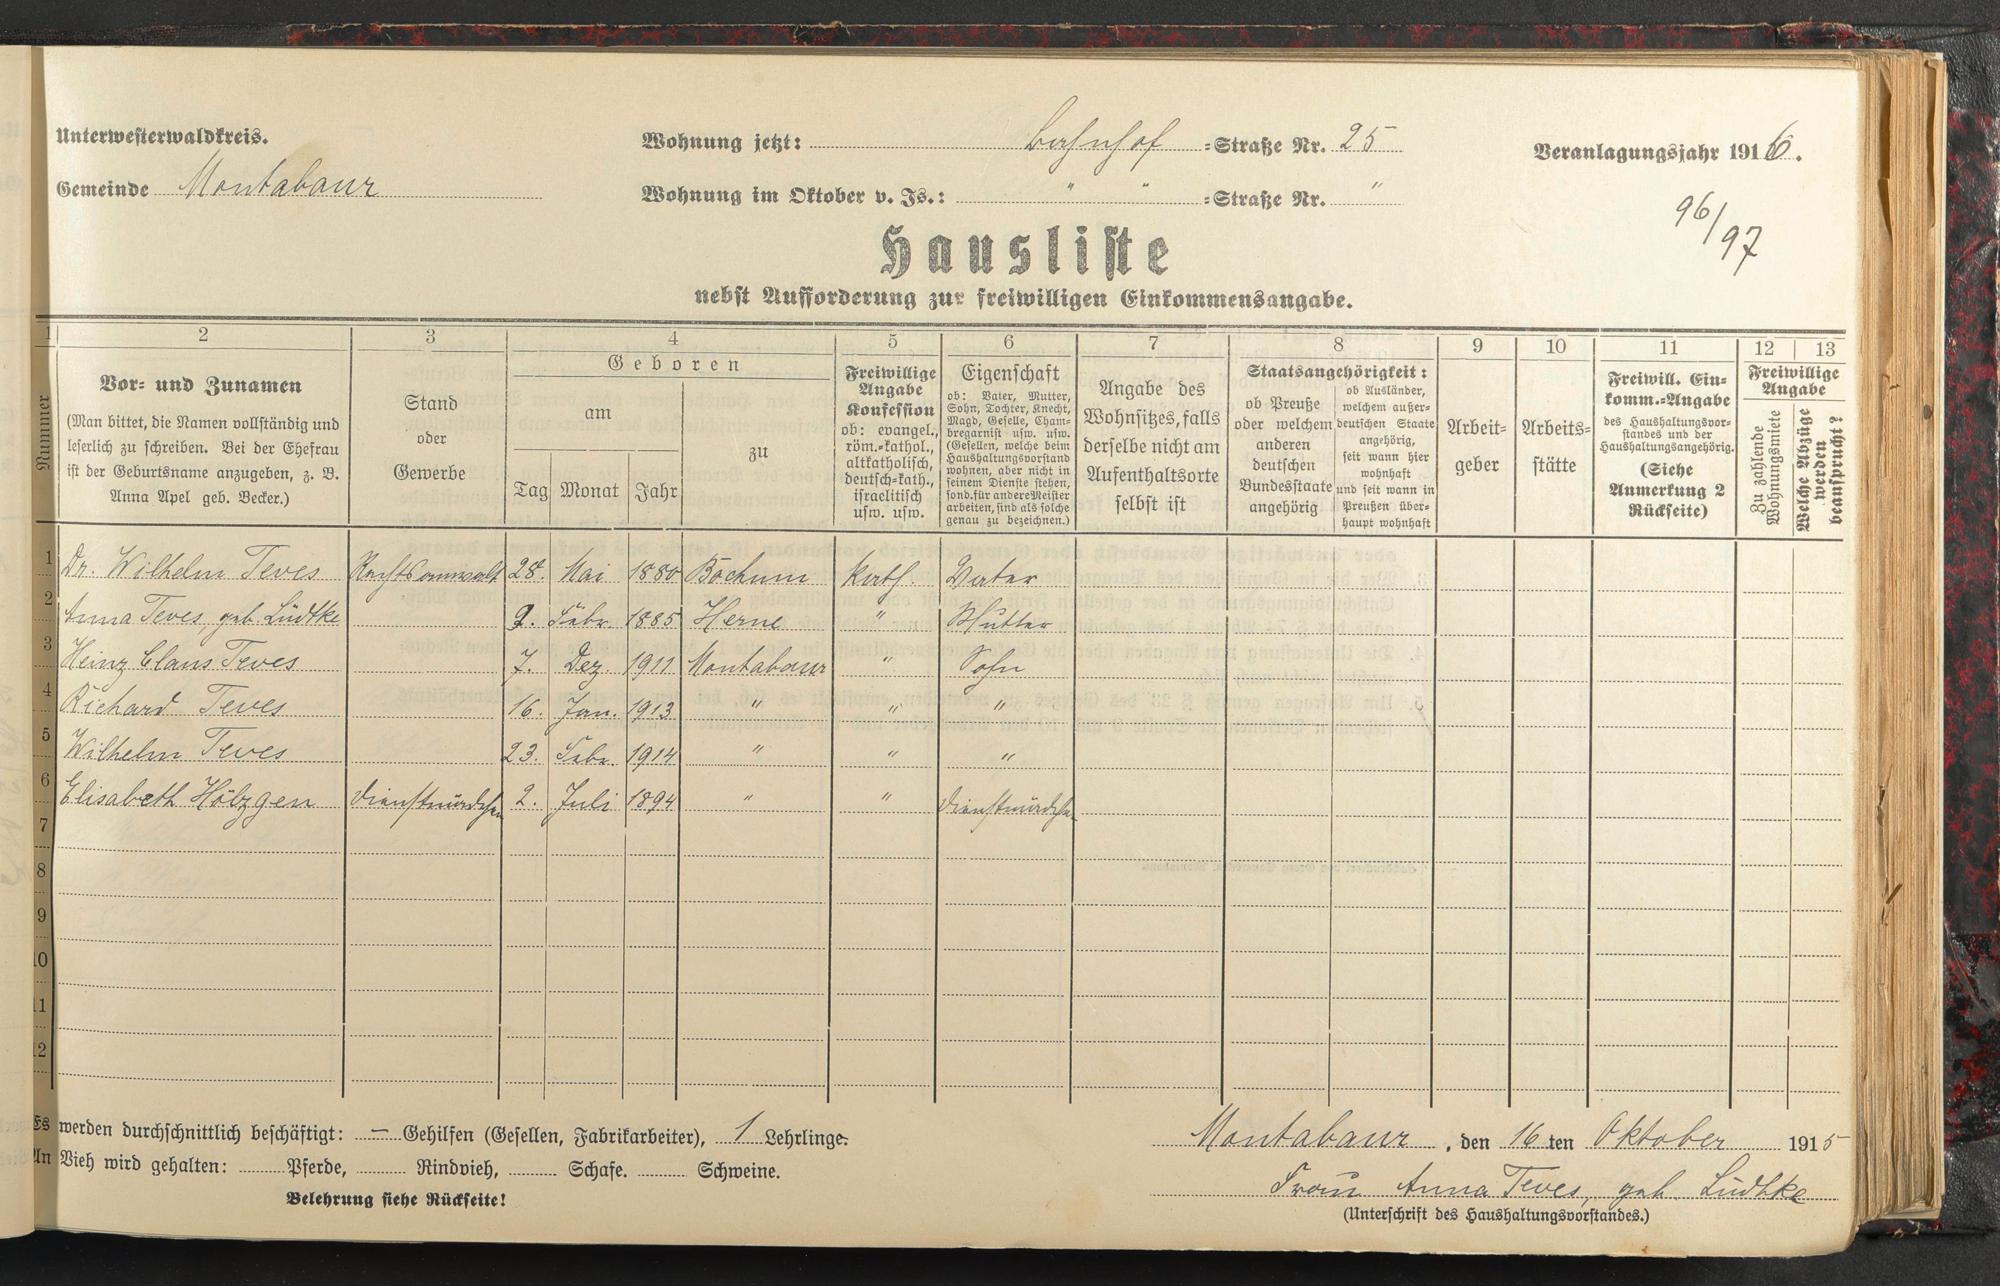 Unterwesterwaldkreis.
Gemeinde Montabaur
Wohnung jetzt: Bahnhof =Straße Nr. 25
Wohnung im Oktober v. Js.: " " =Straße Nr. "
Veranlagungsjahr 1916.
96/97
Hausliste
nebst Aufforderung zur freiwilligen Einkommensangabe.
1 2 3 4 5 6 7 8 9 10 11 12 13
Nummer
Vor= und Zunamen
(Man bittet, die Namen vollständig und
leserlich zu schreiben. Bei der Ehefrau
ist der Geburtsname anzugeben, z. B.
Anna Apel geb. Becker.)
Stand
oder
Gewerbe
Geboren
am
Tag Monat Jahr
zu
Freiwillige
Angabe
Konfession
ob: evangel.,
röm.=kathol.,
altkatholisch,
deutsch=kath.,
israelitisch
usw. usw.
Eigenschaft
ob: Vater, Mutter,
Sohn, Tochter, Knecht,
Magd, Geselle, Cham=
bregarnist usw. usw.
(Gesellen, welche beim
Haushaltungsvorstand
wohnen, aber nicht in
seinem Dienste stehen,
sond. für andere Meister
arbeiten, sind als solche
genau zu bezeichnen.)
Angabe des
Wohnsitzes, falls
derselbe nicht am
Aufenthaltsorte
selbst ist
Staatsangehörigkeit:
ob Preuße
oder welchem
anderen
deutschen
Bundesstaate
angehörig
ob Ausländer,
welchem außer=
deutschen Staate
angehörig,
seit wann hier
wohnhaft
und seit wann in
Preußen über=
haupt wohnhaft
Arbeit=
geber
Arbeits=
stätte
Freiwill. Ein=
komm.=Angabe
des Haushaltungsvor=
standes und der
Haushaltungsangehörig.
(Siehe
Anmerkung 2
Rückseite)
Freiwillige
Angabe
Zu zahlende
Wohnungsmiete
Welche Abzüge
werden
beansprucht?
1 Dr. Wilhelm Teves Rechtsanwalt 28. Mai 1880 Bochum kath. Vater
2 Anna Teves, geb. Lüdtke 2. Febr. 1885 Herne " Mutter
3 Heinz Claus Teves 7. Dez. 1911 Montabaur " Sohn
4 Richard Teves 16. Jan. 1913 " " "
5 Wilhelm Teves 23. Febr. 1914 " " "
6 Elisabeth Hölzgen Dienstmädchen 2. Juli 1894 " " Dienstmädchen
7
8
9
10
11
12
Es werden durchschnittlich beschäftigt: — Gehilfen (Gesellen, Fabrikarbeiter), 1 Lehrlinge.
An Vieh wird gehalten: Pferde, Rindvieh, Schafe. Schweine.
Belehrung siehe Rückseite!
Montabaur, den 16ten Oktober 1915
Frau Anna Teves, geb. Lüdtke
(Unterschrift des Haushaltungsvorstandes.)